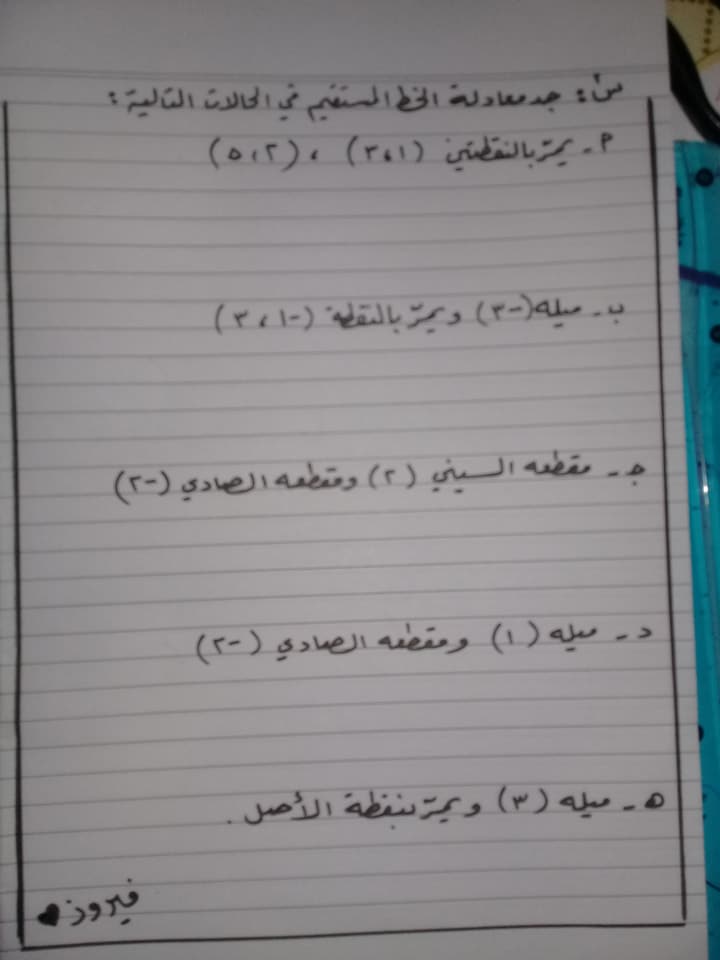 س: جد معادلة الخط المستقيم في الحالات التالية:
أ- يمرّ بالنقطتين (٣،١) ، (٥،٢)
ب- ميله (-٣) ويمرّ بالنقطة (-٣،١)
جـ- مقطعه السيني (٢) ومقطعه الصادي (-٢)
د- ميله (١) ومقطعه الصادي (-٢)
هـ- ميله (٣) ويمرّ بنقطة الأصل.
فيروز♥